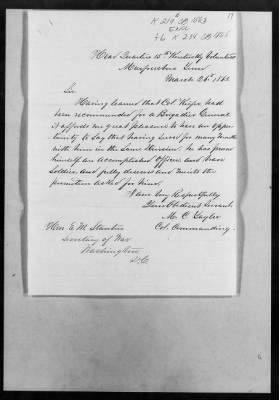 17
Head Quarters 15th Kentucky Volunteers
Murfreesboro Tenn
March 26th 1863
Sir
Having learned that Col. Keifer had
been recommended for a Brigadier General
it affords me great pleasure to have an oppor-
tunity to say that having served for many months
with him in the same Division. he has proven
himself an accomplished officer, and brave
Soldier, and fully deserves and merits the
promotion asked for him.
I am Very Respectfully
Your Obedient Servant
M. C. Taylor
Col. Commanding.
Hon. E. M. Stanton
Secretary of War
Washington
D.C.